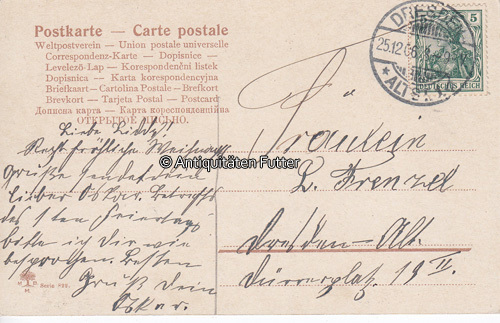 Postkarte — Carte postale
Weltpostverein — Union postale universelle
Correspondenz-Karte — Dopisnice —
Levelező-Lap — Korespondenční listek
Dopisnica — Karta korespondencyjna
Briefkaart — Cartolina Postale — Brefkort
Brevkort — Tarjeta Postal — Postcard
Дописна карта — Карта кореспонденційна
ОТКРЫТОЕ ПИСЬМО.
DRESDEN
25.12.06
* ALTST.
5
DEUTSCHES REICH
© Antiquitäten Futter
Liebe
Recht fröhliche Weihnachts
Grüße sendet dein
lieber Oskar. Betreffs
des 1ten Feiertag
bitte ich dir wie
besprochen. Besten
Gruß Dein
Oskar.
Fräulein
L. Frenzel
Dresden-Alt.
Dürerplatz 19 II.
M.
Serie